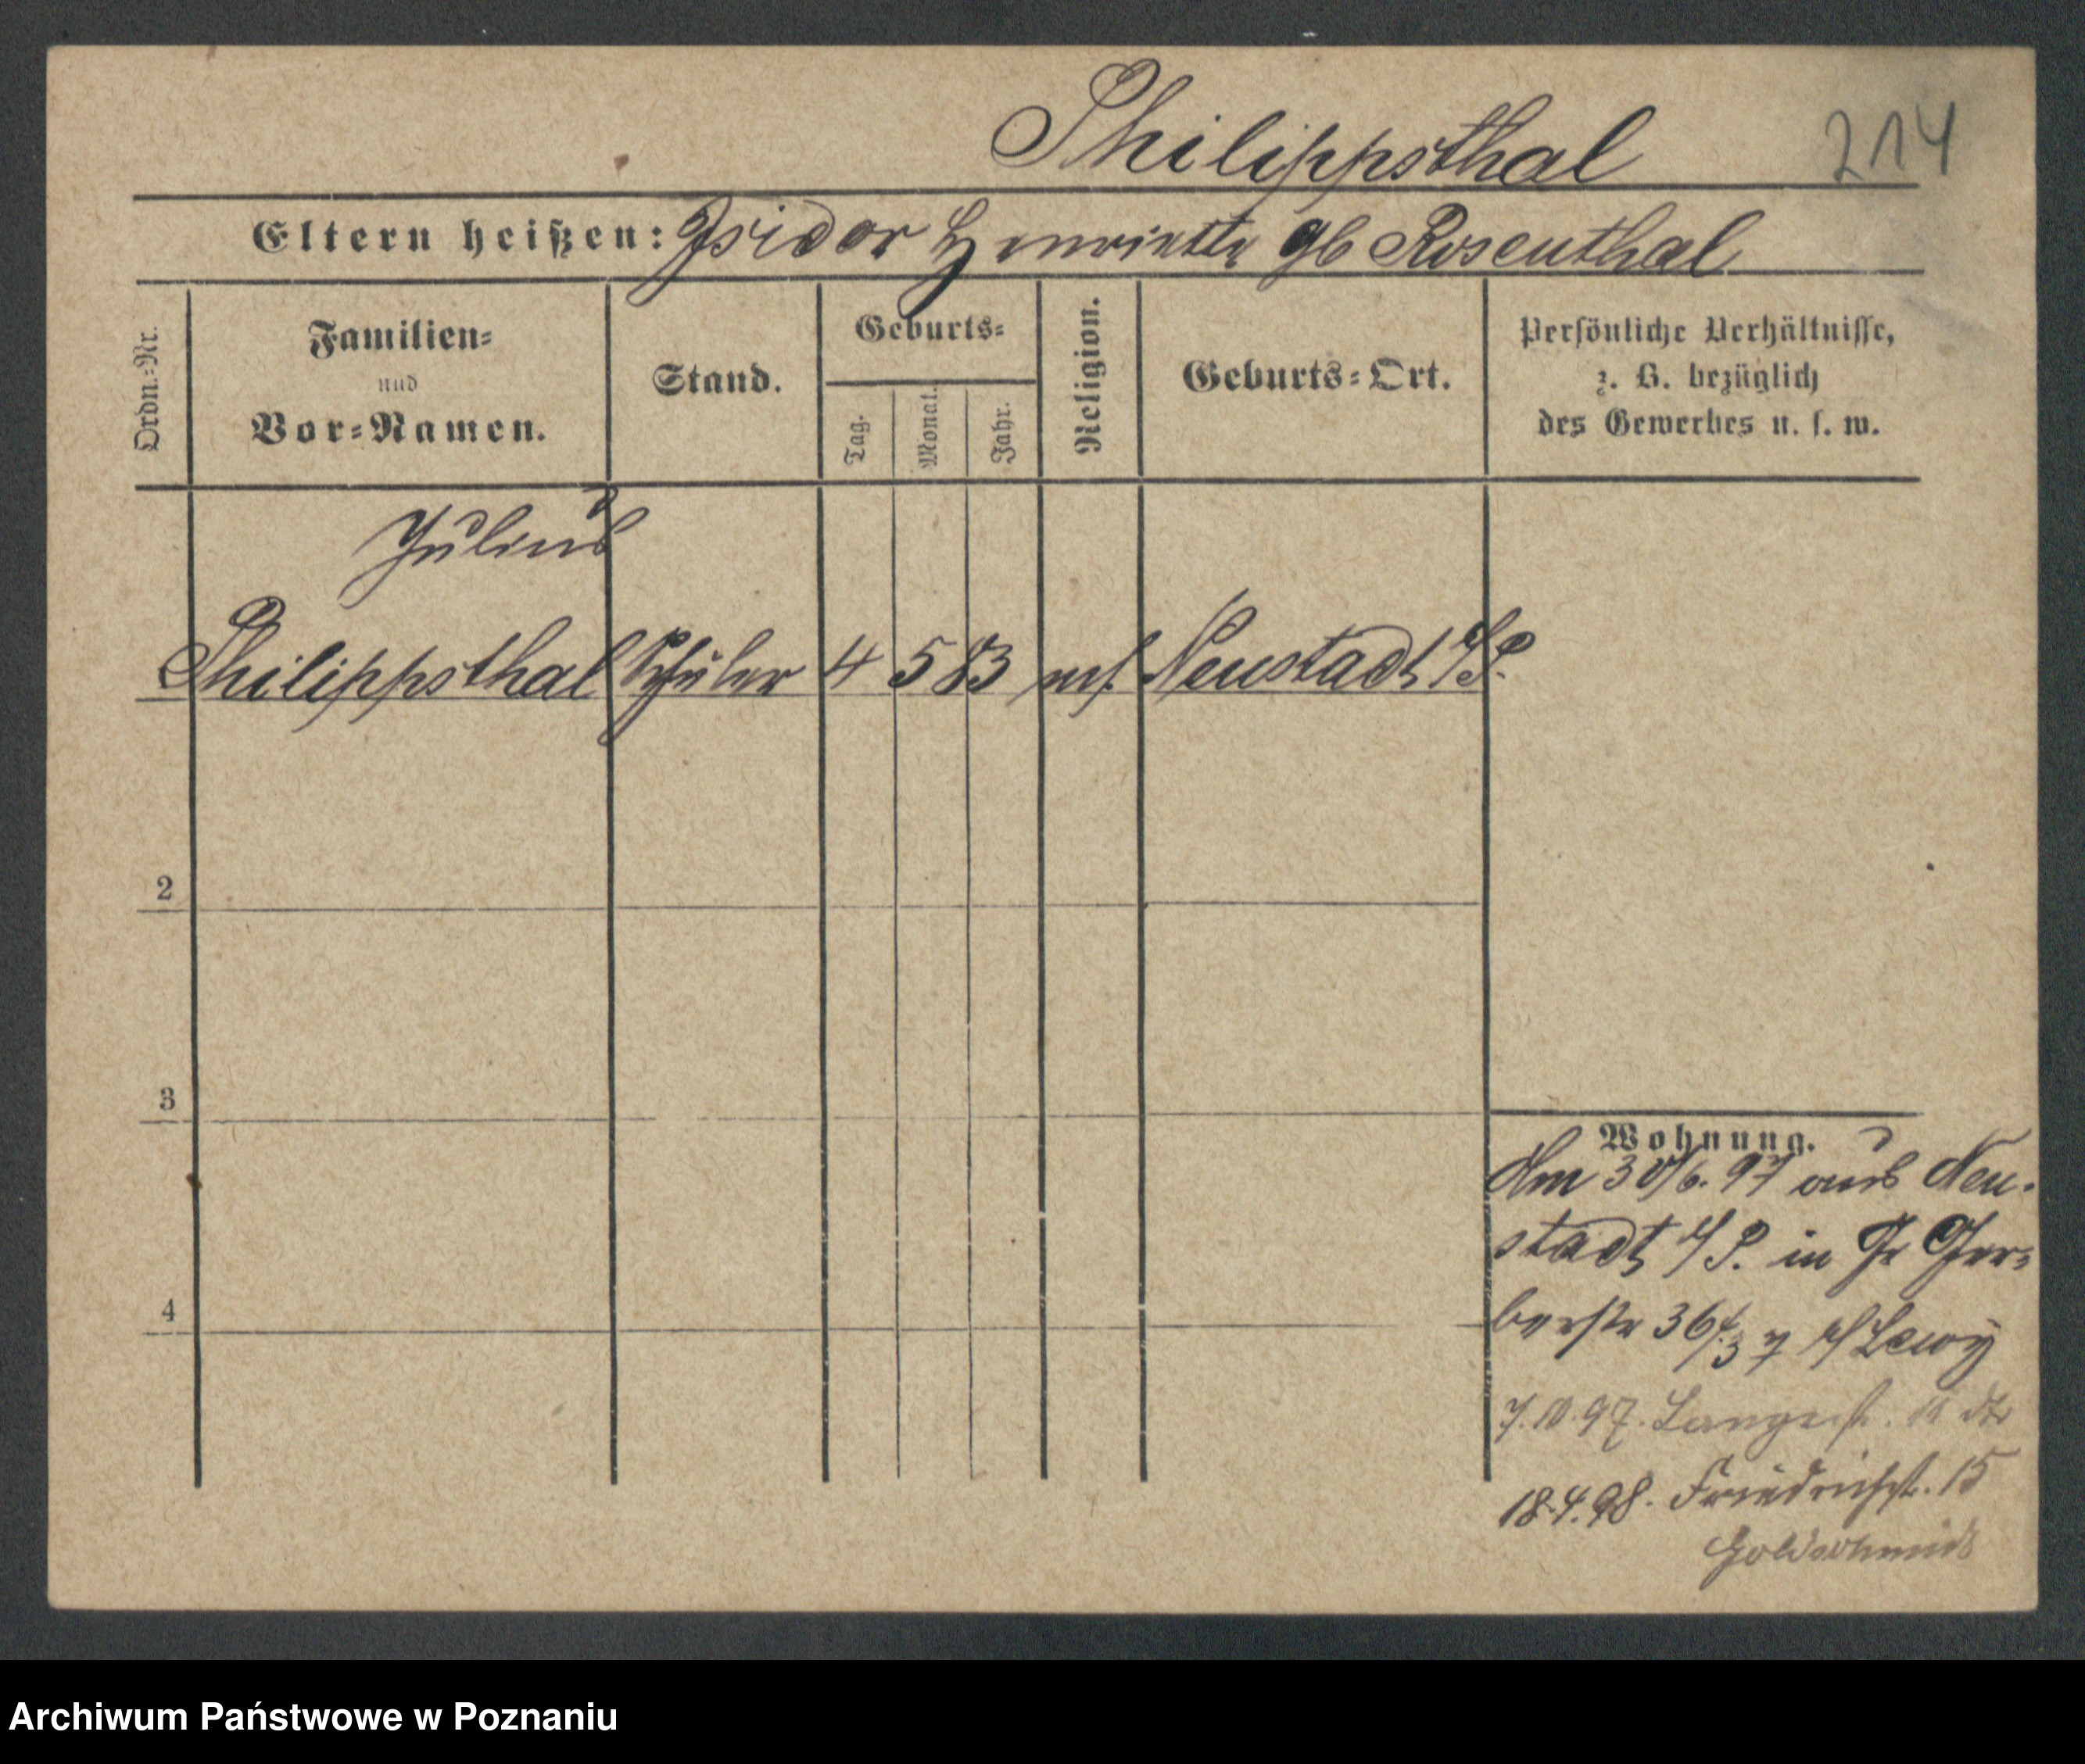 Philippsthal 214
Eltern heißen: Isidor Henriette gb Rosenthal
Ordn.-Nr.
Familien-
und
Vor-Namen.
Stand.
Geburts-
Tag.
Monat.
Jahr.
Religion.
Geburts-Ort.
Persönliche Verhältnisse,
z. B. bezüglich
des Gewerbes u. s. w.
Julius
Philippsthal Schüler 4 5 83 Neustadt /P.
2
3
4
Wohnung.
Am 30/6. 97 aus Neu-
stadt /P. in Gr Ger-
berstr 36 Lewy
7.10.97. Langestr. 11
18.4.98. Friedrichst. 15
Goldschmidt
Archiwum Państwowe w Poznaniu